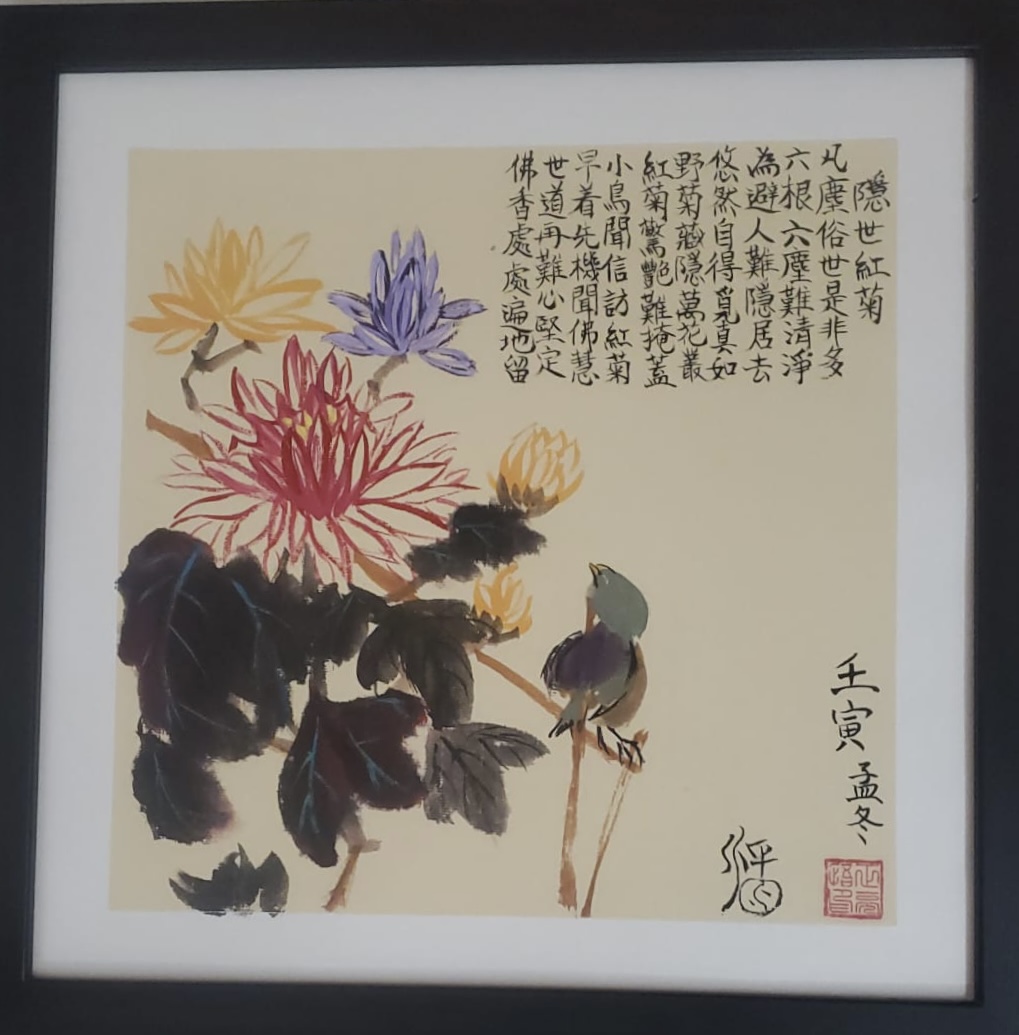 隱世紅菊
凡塵俗世是非多
六根六塵難清淨
為避人難隱居去
悠然自得覓真如
野菊藏隱萬花叢
紅菊驚艷難掩蓋
小鳥聞信訪紅菊
早着先機聞佛慧
世道再難心堅定
佛香處處遍地留
壬寅孟冬